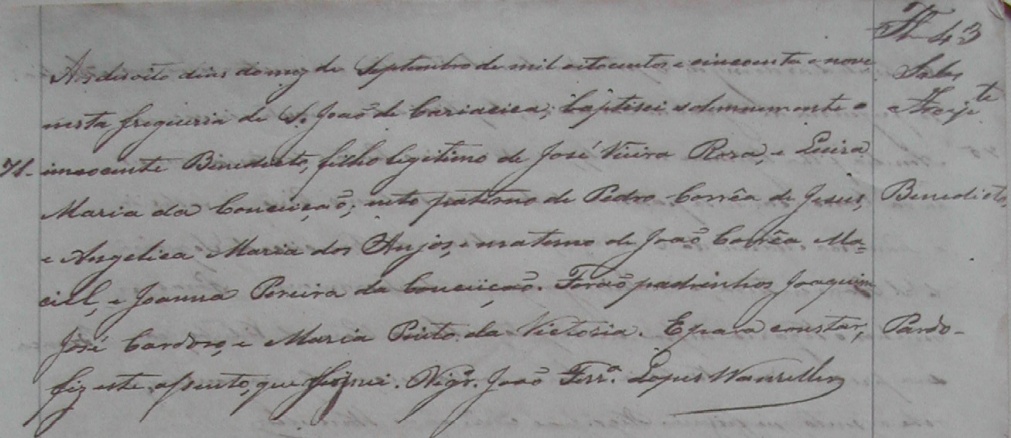 Fl 43
Aos desoito dias do mez de Septembro de mil oitocentos e cincoenta e nove
nesta freguezia de S. João de Cariacica; baptisei solemnemente o
innocente Benedicto, filho legitimo de José Vieira Roza, e Luiza
Maria da Conceiçaõ; neto paterno de Pedro Corrêa de Jesus,
e Angelica Maria dos Anjos, e materno de Joaõ Corrêa Ma=
ciel, e Joanna Pereira da Conceiçaõ. Foraõ padrinhos Joaquim
José Cardozo, e Maria Pinto da Victoria. E para constar,
fiz este assento, que assignei. Vigr.º Joaõ Ferr.ª Lopes Wanzeller
71-
Benedicto,
Pardo-